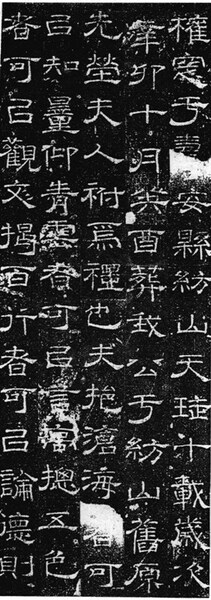 權窆于壽安縣紡山天珤十載歲次
辛卯十月癸酉葬我公于紡山舊原
先塋夫人祔焉禮也夫挹滄海者可
㠯知量仰青雲者可㠯言摠五色
者可㠯觀文揭百行者可㠯論德則